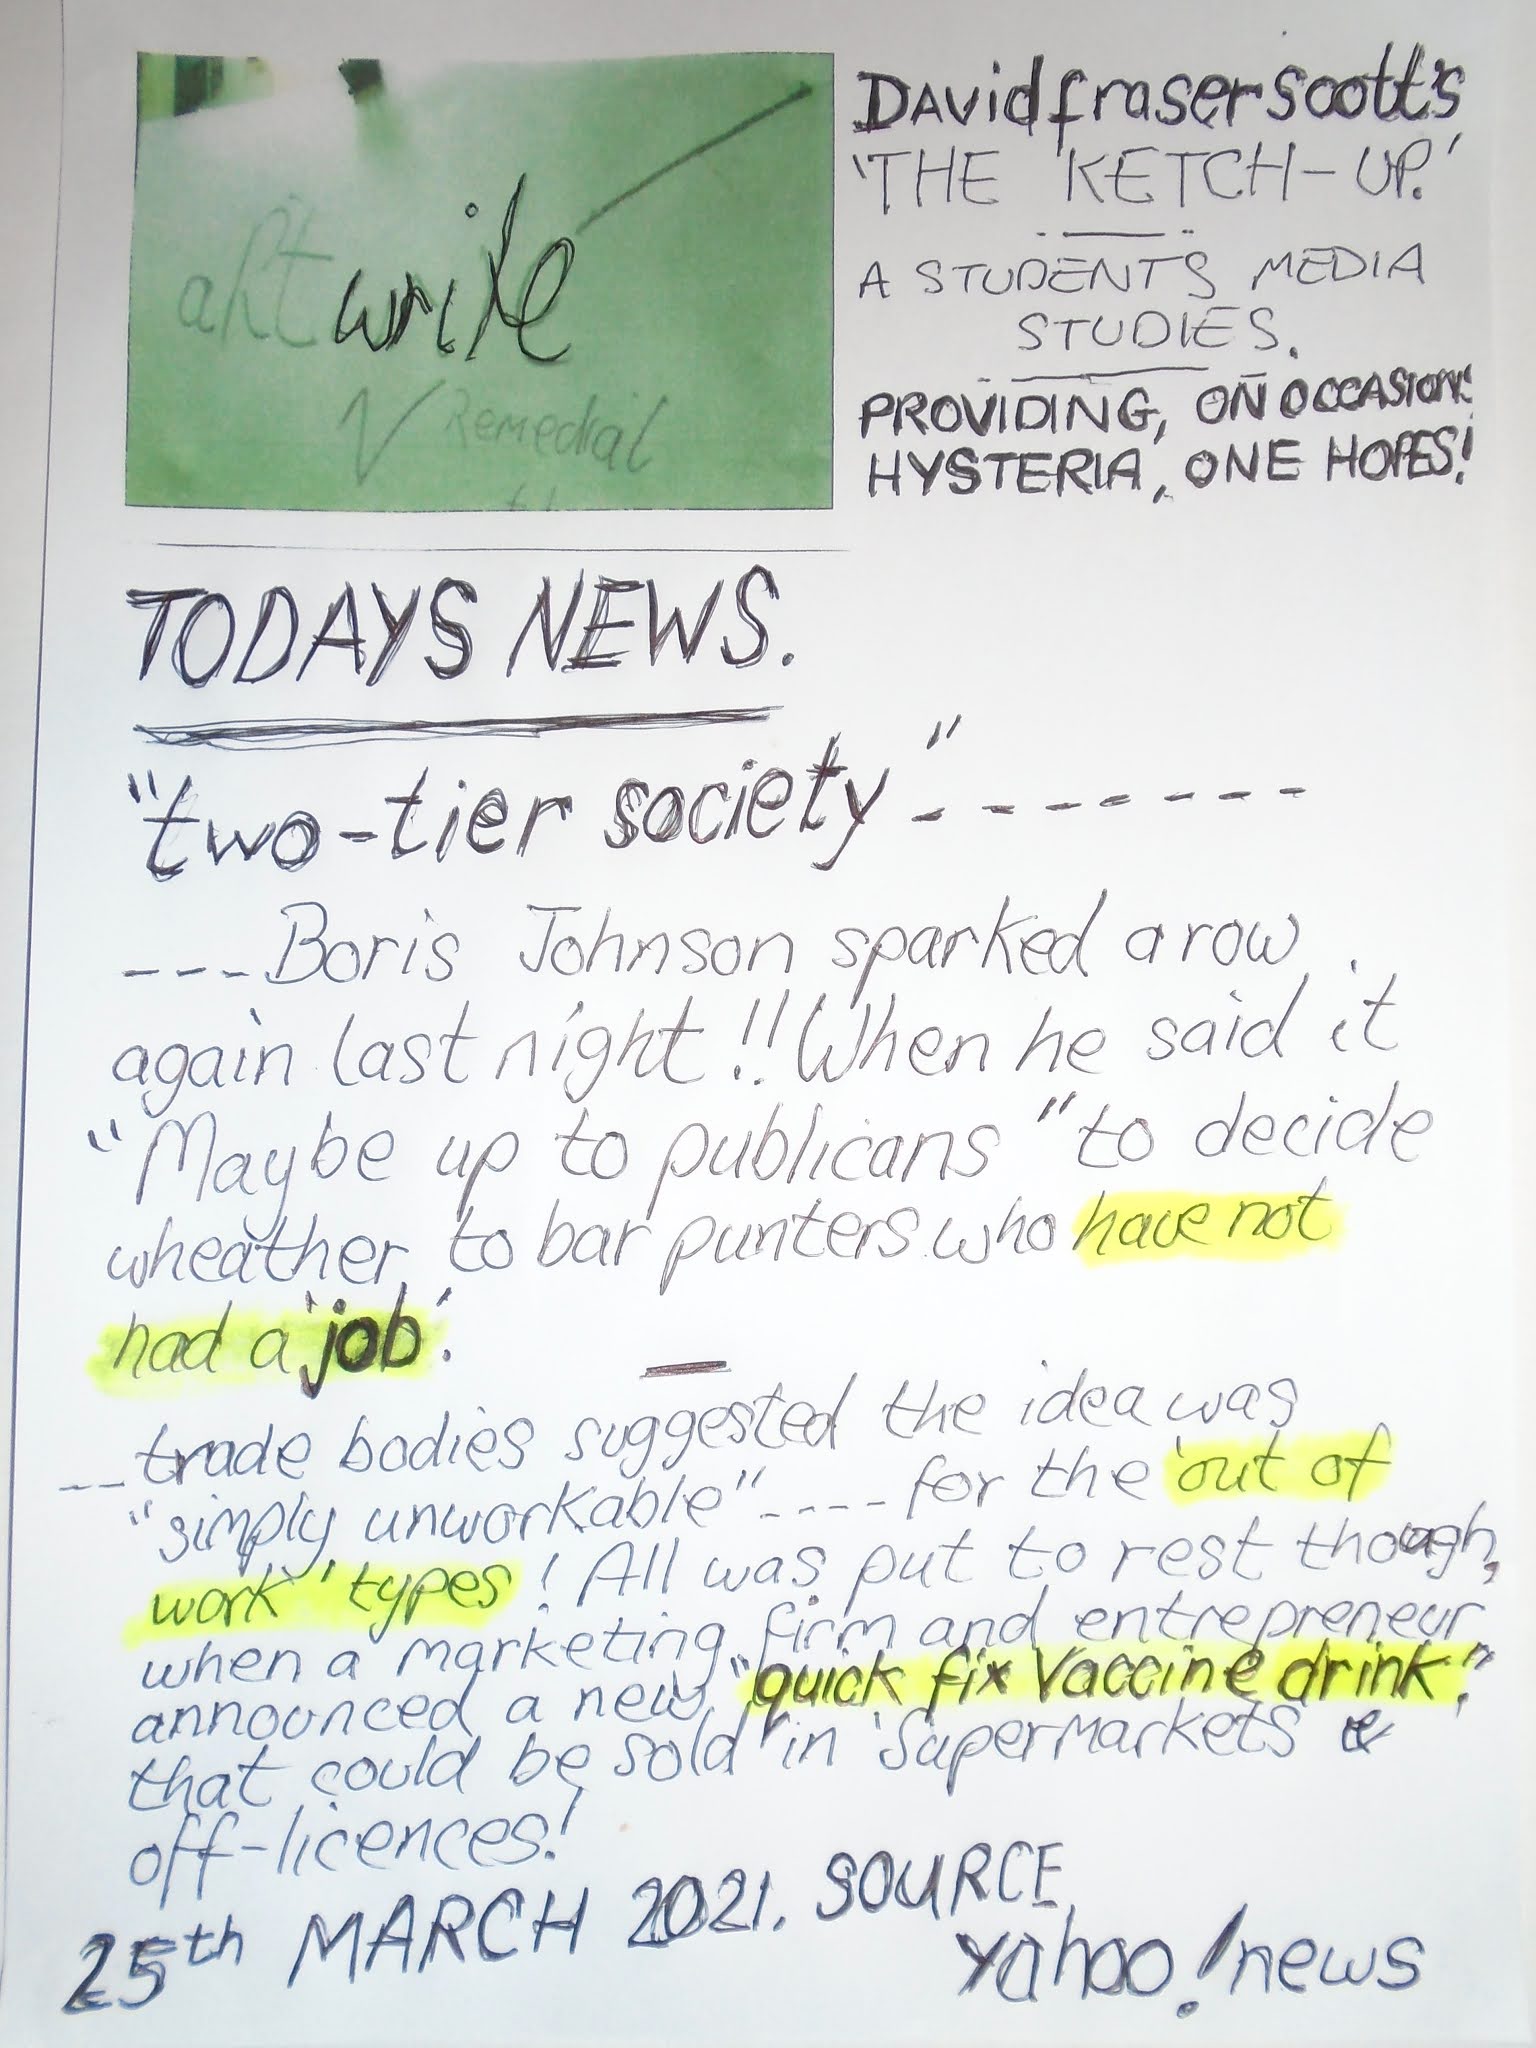 aht write
Remedial
Davidfraserscott's
'THE KETCH-UP.'
A STUDENTS MEDIA
STUDIES.
PROVIDING, ON OCCASION!
HYSTERIA, ONE HOPES!
TODAYS NEWS.
"two-tier society"-------
---Boris Johnson sparked a row
again last night!! When he said it
"Maybe up to publicans" to decide
wheather to bar punters who have not
had a 'job'.
--trade bodies suggested the idea was
"simply unworkable"---- for the 'out of
work' types! All was put to rest though,
when a marketing firm and entrepreneur
announced a new "quick fix Vaccine drink".
that could be sold in 'Supermarkets &
off-licences!
25th MARCH 2021. SOURCE
Yahoo! news